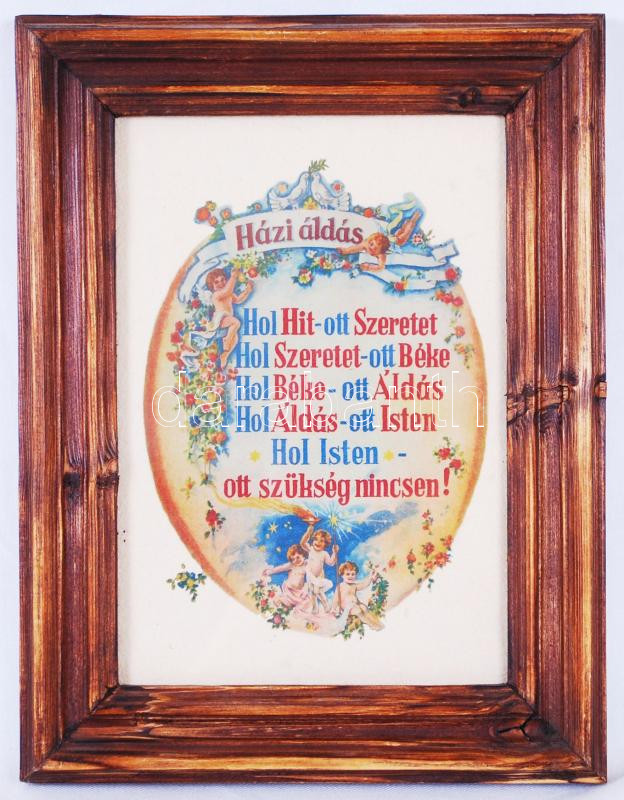 Házi áldás
Hol Hit-ott Szeretet
Hol Szeretet-ott Béke
Hol Béke-ott Áldás
Hol Áldás-ott Isten
Hol Isten -
ott szükség nincsen!
darabanth